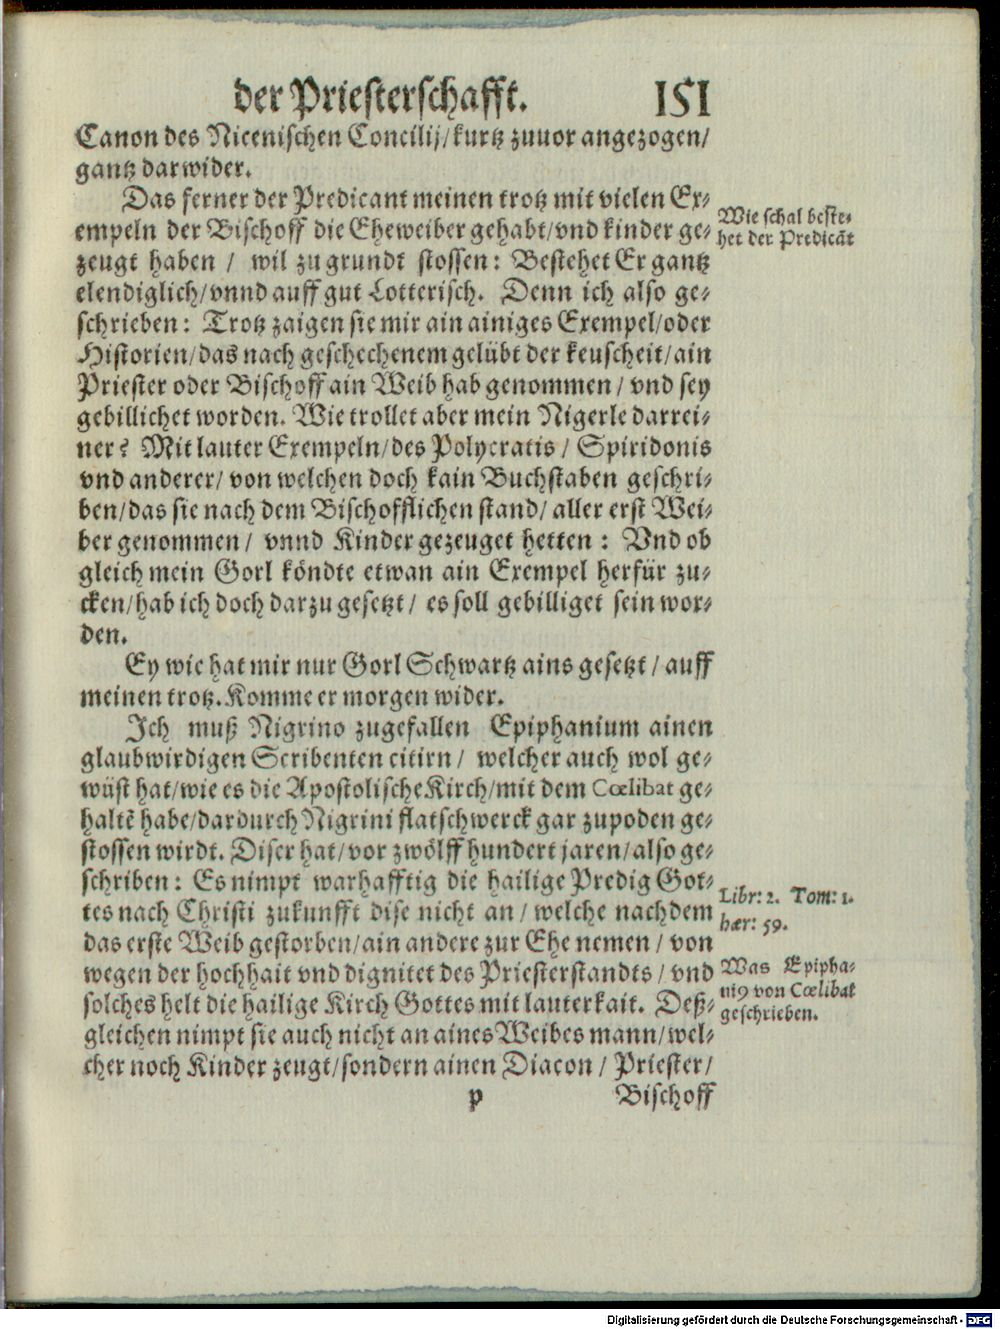 der Priesterschafft. 151
Canon des Nicenischen Concilij/kurtz zuuor angezogen/
gantz darwider.
Das ferner der Predicant meinen trotz mit vielen Ex-
empeln der Bischoff die Eheweiber gehabt/vnd kinder ge-
zeugt haben / wil zu grundt stossen: Bestehet Er gantz
elendiglich/vnnd auff gut Lotterisch. Denn ich also ge-
schrieben: Trotz zaigen sie mir ain ainiges Exempel/oder
Historien/das nach geschechenem gelübt der keuscheit/ain
Priester oder Bischoff ain Weib hab genommen / vnd sey
gebillichet worden. Wie trollet aber mein Nigerle darrei-
ner? Mit lauter Exempeln/des Polycratis / Spiridonis
vnd anderer/von welchen doch kain Buchstaben geschri-
ben/das sie nach dem Bischofflichen stand/ aller erst Wei-
ber genommen / vnnd Kinder gezeuget hetten : Vnd ob
gleich mein Gorl köndte etwan ain Exempel herfür zu-
cken/hab ich doch darzu gesetzt / es soll gebilliget sein wor-
den.
Ey wie hat mir nur Gorl Schwartz ains gesetzt / auff
meinen trotz. Komme er morgen wider.
Ich muß Nigrino zugefallen Epiphanium ainen
glaubwirdigen Scribenten citirn / welcher auch wol ge-
wüst hat/wie es die Apostolische Kirch/mit dem Cœlibat ge-
haltē habe/dardurch Nigrini flatschwerck gar zupoden ge-
stossen wirdt. Diser hat/vor zwölff hundert jaren/also ge-
schriben: Es nimpt warhafftig die hailige Predig Got-
tes nach Christi zukunfft dise nicht an / welche nachdem
das erste Weib gestorben/ain andere zur Ehe nemen / von
wegen der hochhait vnd dignitet des Priesterstandts / vnd
solches helt die hailige Kirch Gottes mit lauterkait. Deß-
gleichen nimpt sie auch nicht an aines Weibes mann/wel-
cher noch Kinder zeugt/sondern ainen Diacon / Priester/
p Bischoff
Wie schal beste-
het der Predicāt
Libr: 2. Tom: 1.
hær: 59.
Was Epipha-
niꝰ von Cœlibat
geschrieben.
Digitalisierung gefördert durch die Deutsche Forschungsgemeinschaft - DFG